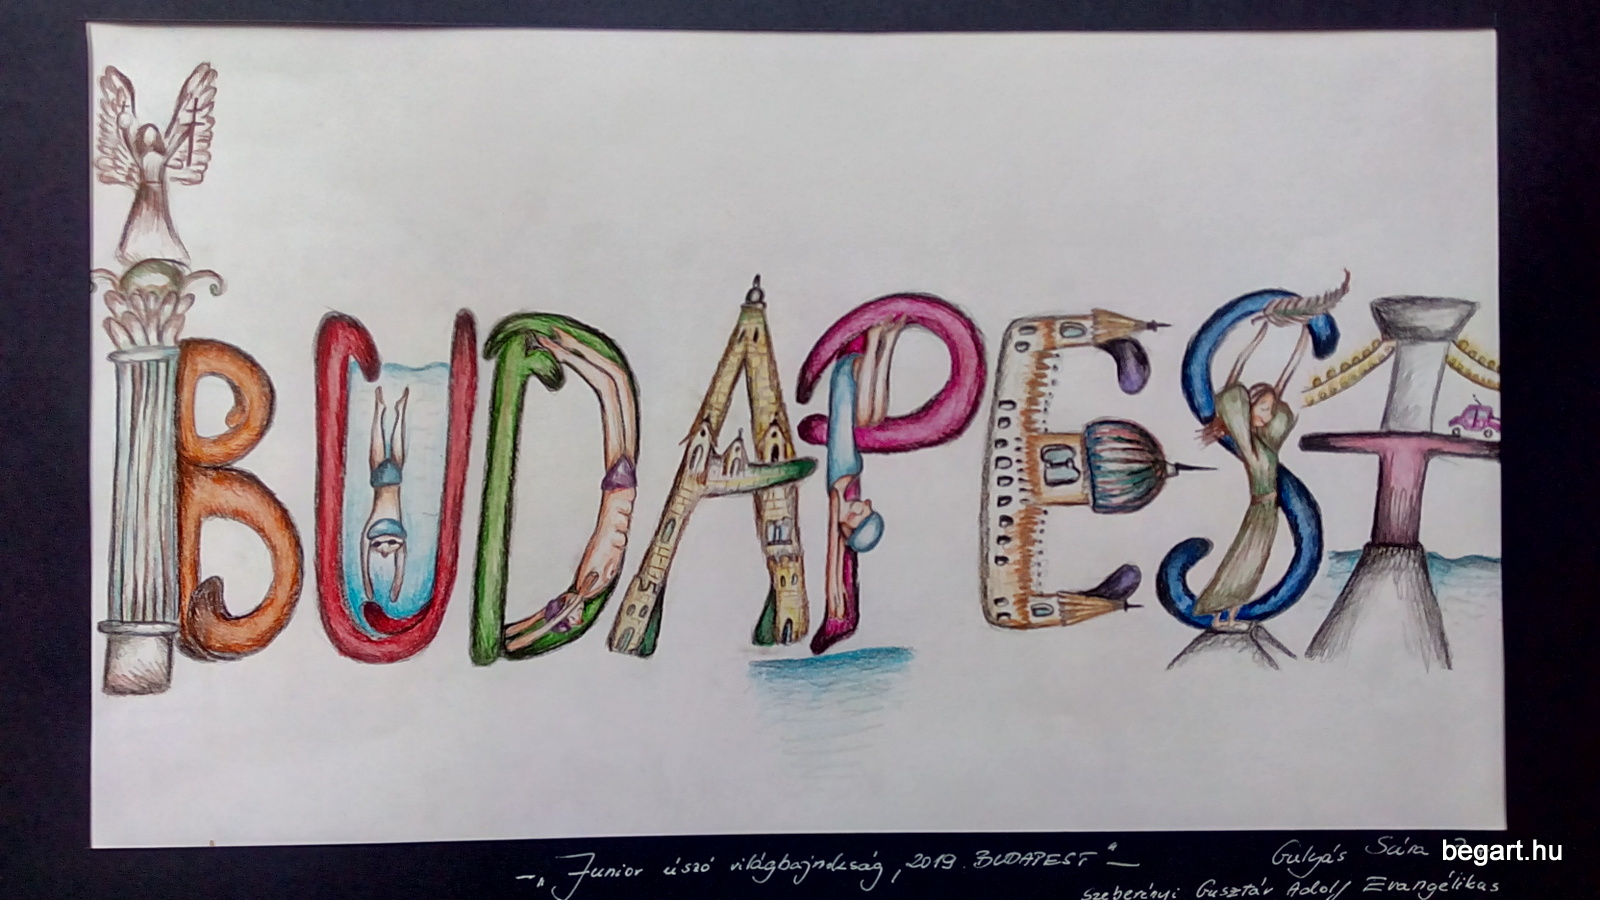 BUDAPEST
-„Junior úszó világbajnokság, 2019. BUDAPEST"-
Gulyás Sára
begart.hu
Szeberényi Gusztáv Adolf Evangélikus